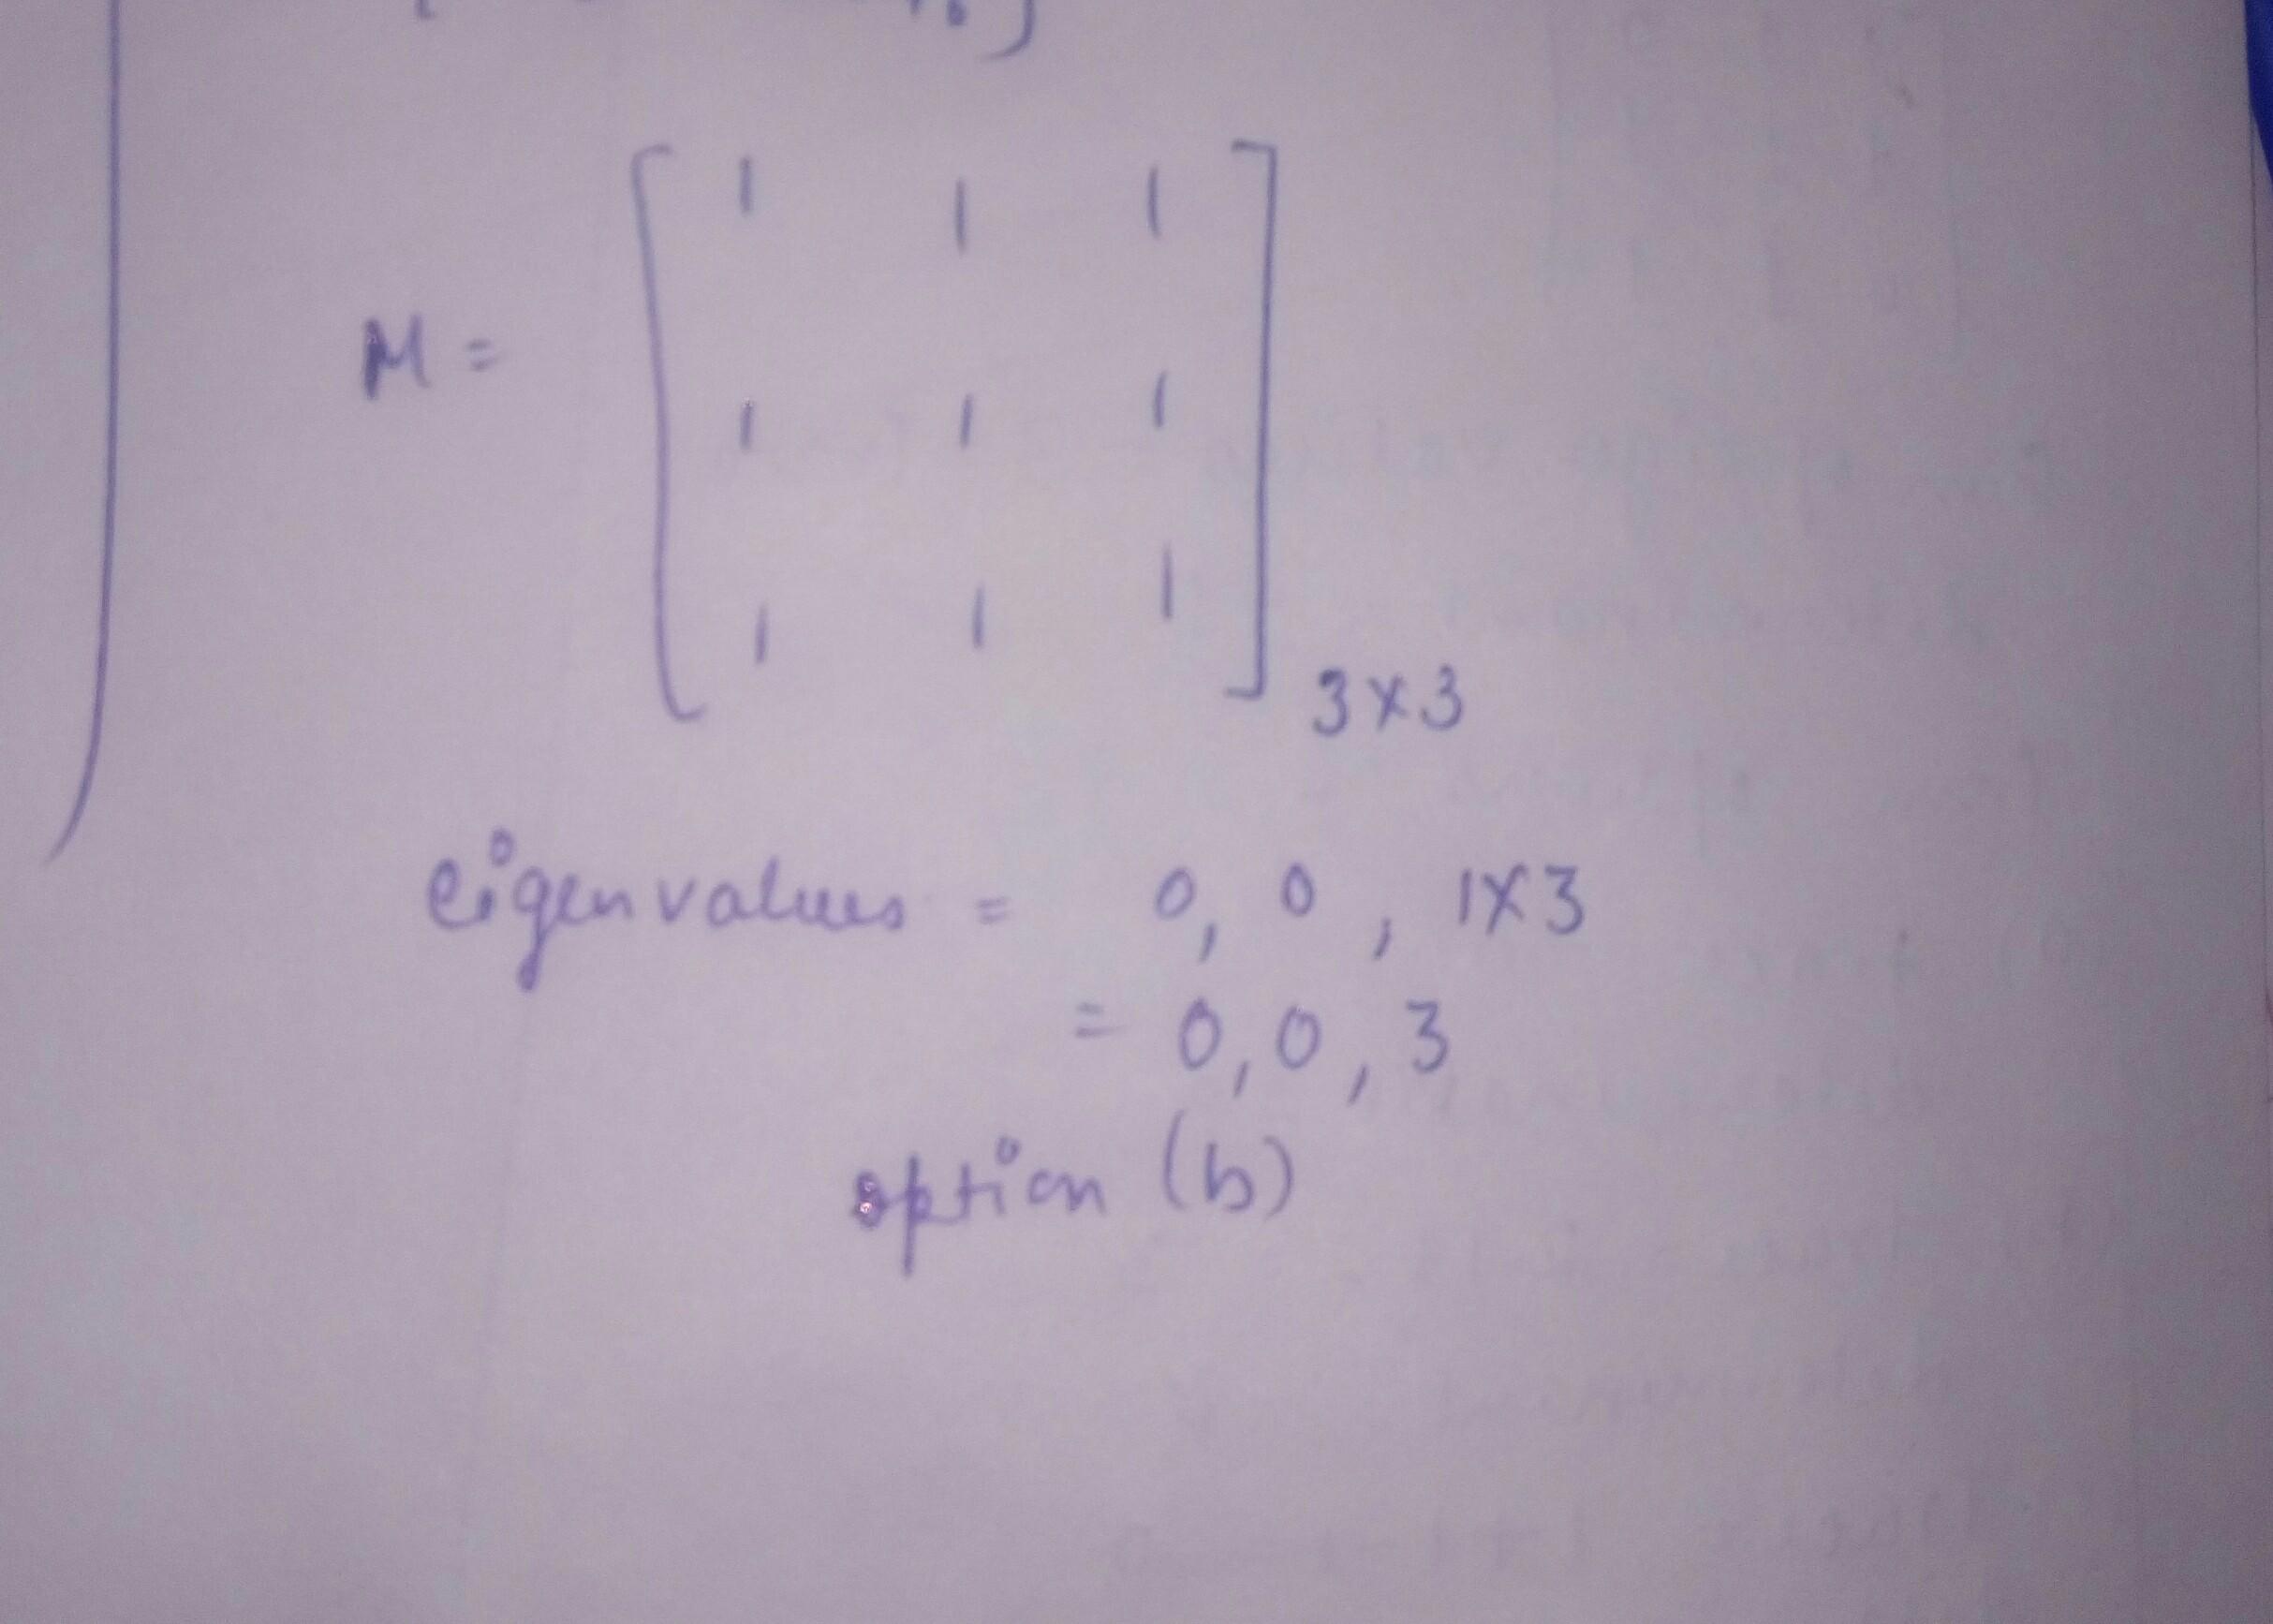 1 1 1
M = 1 1 1
1 1 1
3×3
eigenvalues = 0, 0, 1×3
= 0, 0, 3
option (b)